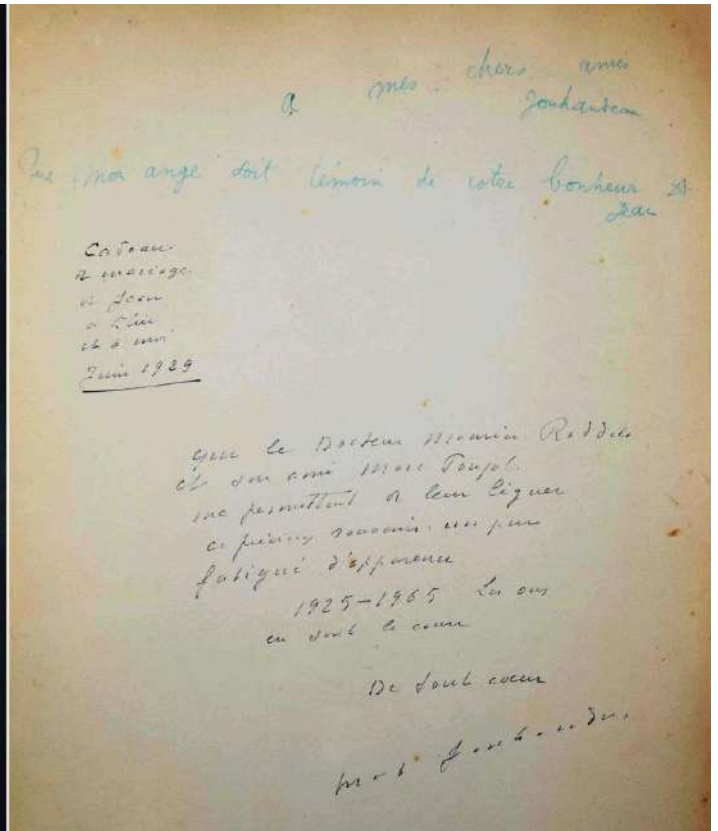 A mes chers amis
Jouhandeau
Que mon ange soit témoin de votre bonheur
Jean
Cadeau
de mariage
de Jean
à Élise
et à moi
Juin 1929
que le Docteur Maurice
et son ami Marc
me permettent de leur léguer
ce précieux souvenir un peu
fatigué d'apparence
1925-1965 Les ans
en sont la cause
De tout coeur